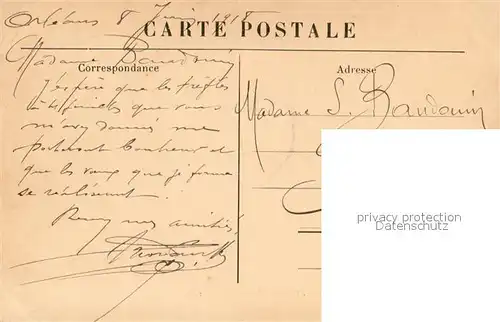 Orléans 8 Juin 1918
CARTE POSTALE
Madame Baudouin
Correspondance
J'espère que les trèfles
à feuilles que vous
m'avez donnés me
porteront bonheur et
que les vœux que je forme
se réaliseront
mes amitiés
Adresse
Madame S. Baudouin
privacy protection
mypostcards.com